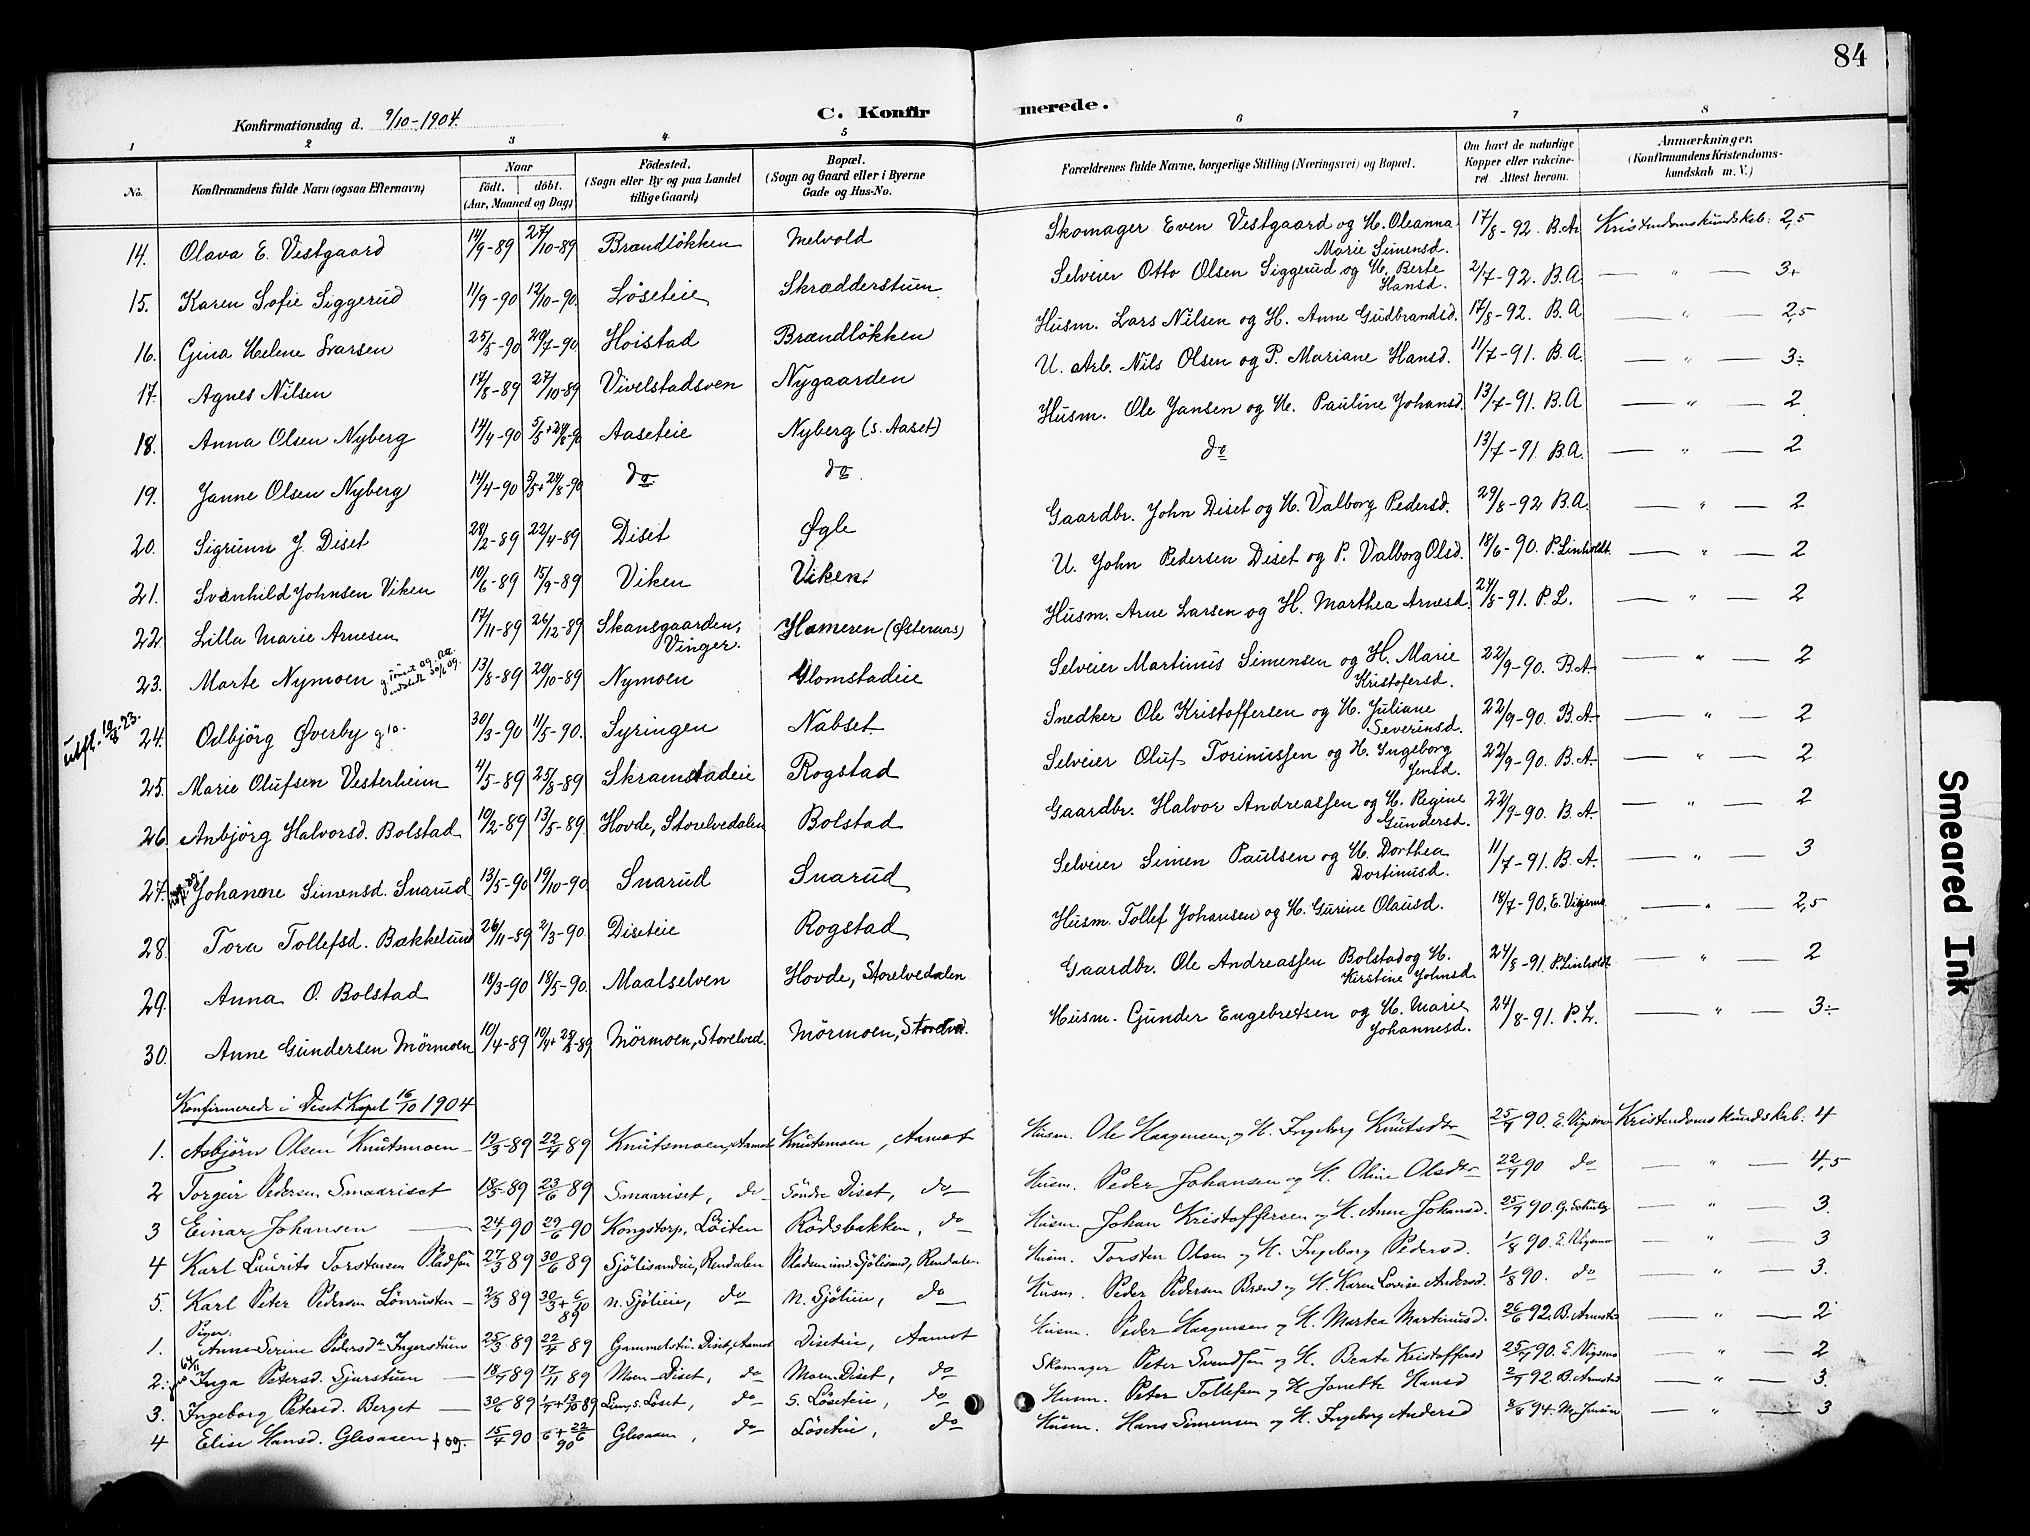 84
Konfirmationsdag d. 9/10-1904.
C. Konfirmerede.
1 2 3 4 5 6 7 8
No. Konfirmandens fulde Navn (ogsaa Efternavn) Naar födt. döbt. (Aar, Maaned og Dag) Födested. (Sogn eller By og paa Landet tillige Gaard) Bopæl. (Sogn og Gaard eller i Byerne Gade og Hus-No. Forældrenes fulde Navne, borgerlige Stilling (Næringsvei) og Bopæl. Om havt de naturlige Kopper eller vakcineret. Attest herom. Anmærkninger. (Konfirmandens Kristendomskundskab m. V.)
14. Olava E. Vestgaard 14/9-89 27/10-89 Brændløkken Melvold Skomager Even Vestgaard og H. Oleanna Marie Simensd. 17/8-92. B.A. Kristendomskundskab: 2,5
15. Karen Sofie Siggerud 11/9-90 12/10-90. Løseteie Skrædderstuen Selveier Otto Olsen Siggerud og H. Berte Hansd. 2/7-92. B.A. — " — 3+
16. Gina Helene Larsen 25/5-90 20/7-90 Hoistad Brændløkken Husm. Lars Nilsen og H. Anne Gudbrandsd. 17/8-92. B.A. — " — 2,5
17. Agnes Nilsen 17/8-89 27/10-89 Vivelstadsven Nygaarden U. Arb. Nils Olsen og P. Mariane Hansd. 11/7-91. B.A. — " — 3÷
18. Anna Olsen Nyberg 14/4-90 5/5+24/8-90 Aaseteie Nyberg (s. Aaset) Husm. Ole Jansen og H. Pauline Johansd. 13/7-91. B.A — " — 2
19. Janne Olsen Nyberg 14/4-90 5/5+24/8-90 do do do 13/7-91. B.A. — " — 2
20. Sigrunn J. Diset 28/2-89 22/4-89 Diset Øgle Gaardbr. John Diset og H. Valborg Pedersd. 29/8-92 B.A. — " — 2
21. Svanhild Johnsen Viken 10/6-89 15/9-89 Viken Viken U. John Pedersen Diset og P. Valborg Olsd. 18/6-90. P. Linholdt. — " — 2
22. Lilla Marie Arnesen 17/11-89 26/12-89 Skansgaarden, Vinger. Hameren (Østeraas) Husm. Arne Larsen og H. Marthea Arnesd. 24/8-91. P.L. — " — 2
23. Marte Nymoen 13/8-89 20/10-89 Nymoen Glomstadeie Selveier Martinus Simensen og H. Marie Kristofersd. 22/9-90. B.A. — " — 2
utfl. 10/8-23. 24. Odbjörg Øverby g 10. 30/3-90 11/5-90. Syringen Nabset Snedker Ole Kristoffersen og H. Juliane Severinsd. 22/9-90. B.A. — " — 2
25. Marie Olufsen Vesterheim 4/5-89 25/8-89 Skramstadeie Rogstad Selveier Oluf Torinussen og H. Ingeborg Jensd. 22/9-90. B.A. — " — 2
26. Anbjörg Halvorsd. Bolstad 10/2-89 13/5-89 Hovde, Storelvedalen Bolstad Gaardbr. Halvor Andreassen og H. Regine Gundersd. 22/9-90. B.A. — " — 2
27. Johanne Simensd. Snarud 13/5-90 19/10-90. Snarud Snarud Selveier Simen Paulsen og H. Dorthea Dortinusd. 11/7-91. B.A. — " — 3
28. Tora Tollefsd. Bækkelund 26/11-89 2/3-90. Diseteie Rogstad Husm. Tollef Johansen og H. Gurine Olausd. 18/7-90, E. Vigsmo — " — 2,5
29. Anna O. Bolstad 18/3-90 18/5-90. Maalselven Hovde, Storelvedalen Gaardbr. Ole Andreassen Bolstad og H. Kirstine Johnsd. 24/8-91. P. Linholdt. — " — 2
30. Anne Gundersen Mörmoen 10/4-89 Mörmoen, Storelved. Mörmoen, Storelvd. Husm. Gunder Engebretsen og H. Marie Johannesd. 24/8-91. P.L. — " — 3÷
Konfirmerede i Diset Kapel 16/10 1904
1. Asbjörn Olsen Knutsmoen 19/3-89 22/4 89 Knutsmoen, Aamot Knutsmoen, Aamot Husm. Ole Haagensen og H. Ingeborg Knutsdtr 25/7 90. E. Vigsmo Kristendomskundskab. 4
2 Torgeir Pedersen Smaariset 18/5-89 23/6 89 Smaariset, do Söndre Diset, do Husm. Peder Johansen og H. Oline Olsdtr 22/7 90 do — " — 4,5
3 Einar Johansen 24/4 90 29/6 90 Kongstorp, Löiten Rödsbakken, do Husm. Johan Kristoffersen og H. Anne Johansd. 25/7 90. — " — 3.
4 Karl Laurits Torstensen 27/3 89 30/6 89 Sjölisandeie, Rendalen Sjölisand, Rendalen Husm. Torsten Olsen og H. Ingeborg Pedersd. 1/8 90. E. Vigsmo — " — 3
5. Karl Peter Pedersen Lönrusten 2/3 89 n. Sjölieie, do n. Sjölieie, do Husm. Peder Pedersen Brend og H. Karen Lovise Andersd. 1/8 90. do — " — 3.
Piger.
1. Anne Serine Pedersdtr Ingerstuen 25/3 89 22/4 89 Gammelstu. Diset, Aamot Diseteie, Aamot Husm. Peder Haagensen og H. Martea Martinusd. 26/6 92. B. Armstad — " — 2
2. Inga Petersd. Sjurstuen 18/7 89 17/11 89 Moen-Diset, do Moen-Diset, do Skomager Peter Svendsen og H. Beate Kristoffersd 25/7 90. E. Vigsmo — " — 2
3. Ingeborg Petersd. Berget 30/6 89 s. Löset, do S. Löseteie, do Husm. Peter Tollefsen og H. Jonette Hansd 2/7 92. B. Armstad — " — 3.
4 Elise Hansd. Glesaaen + 09. 15/4 90 Glesaaen, do Löseteie, do Husm. Hans Simensen og H. Ingeborg Andersd 3/8 94. M. Jensen — " — 3
Smeared Ink